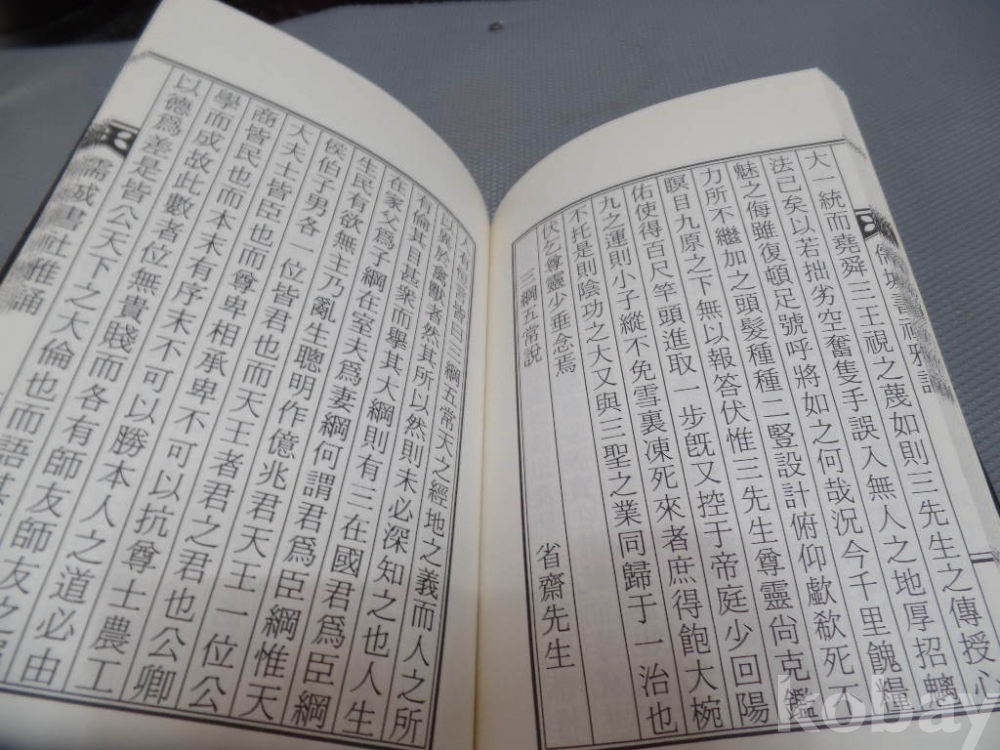 儒城書社雅誦
大一統而堯舜三王視之蔑如則三先生之傳授心
法已矣以若拙劣空奮隻手誤入無人之地厚招魑
魅之侮雖復頓足號呼將如之何哉況今千里餽糧
力所不繼加之頭髮種種二豎設計俯仰歔欷死不
瞑目九原之下無以報答伏惟三先生尊靈尙克鑑
佑使得百尺竿頭進取一步旣又控于帝庭少回陽
九之運則小子縱不免雪裏凍死來者庶得飽大椀
不托是則陰功之大又與三聖之業同歸于一治也
伏乞尊靈少垂念焉
三綱五常說
省齋先生
人有恒言皆曰三綱五常天之經地之義而人之所
以異於禽獸者然其所以然則未必深知之也人生
有倫其目甚衆而擧其大綱則有三在國君爲臣綱
在家父爲子綱在室夫爲妻綱何謂君爲臣綱惟天
生民有欲無主乃亂生聰明作億兆君天王一位公
侯伯子男各一位皆君也而天王者君之君也公卿
大夫士皆臣也而尊卑相承卑不可以抗尊士農工
商皆民也而本末有序末不可以勝本人之道必由
學而成故此數者位無貴賤而各有師友師友之
以德爲差是皆公天下之大倫也而語其
儒城書社雅誦
kobay